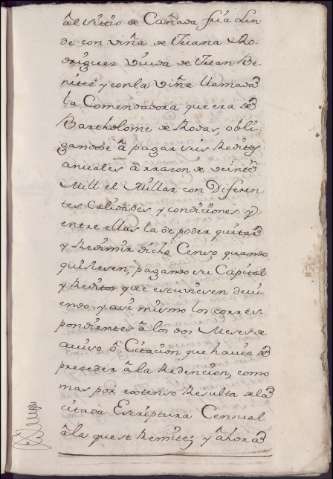 al sitio de Cañada fria Lin
de con viña de Juana Ro
driguez Viuda de Juan Be
nitez y con la viña llamada
la Comendadora que era de
Bartholome de Rodas, obli
gandose a pagar sus Reditos
anuales a rrazon de veinte
Mill el Millar con Diferen
tes Calidades y condiciones y
entre ellas la de poder quitar
y Redimir dicho Censo quando
quisiesen, pagando su Capital
y Reditos que estuviesen devi
endo, y asi mismo los corres
pondientes a los dos Meses de
aviso o Citacion, que havia de
preceder a la Redencion, como
mas por extenso Resulta de la
citada Escriptura Censual
a la que se Remite, y ahora